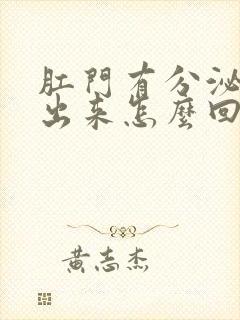 肛門有分泌
出來怎麼回
黃志杰